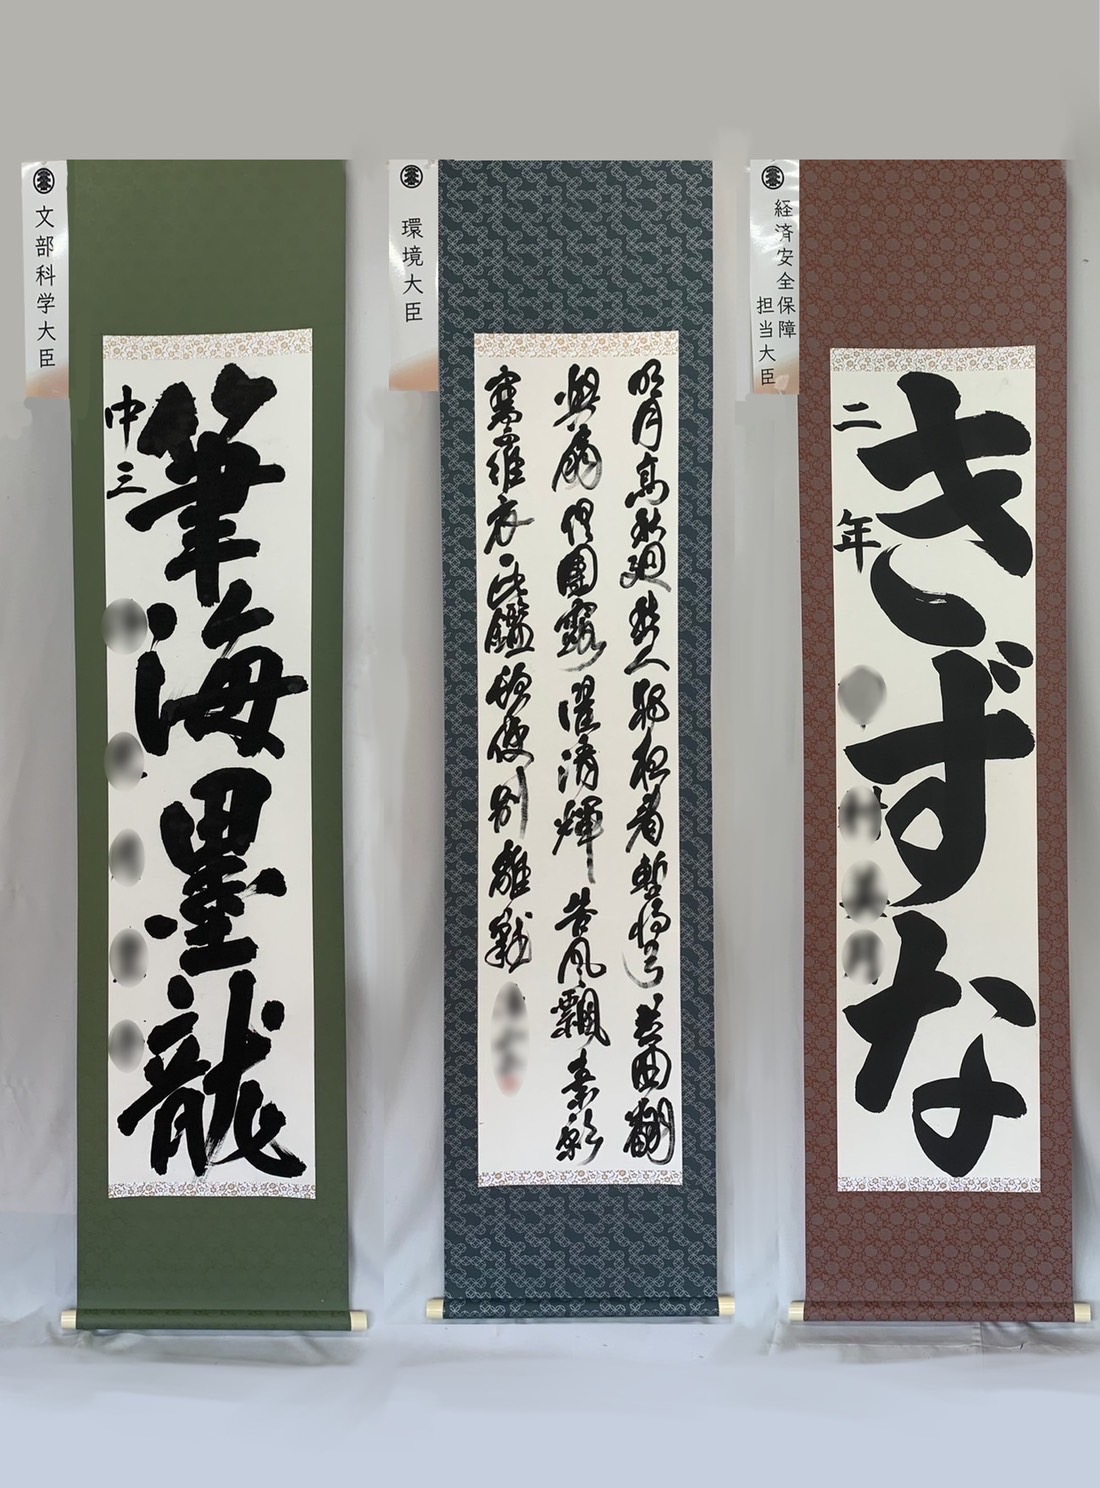 文部科学大臣
筆海墨龍
中三
環境大臣
明月高秋迥愁人獨夜看暫将弓並曲翻
與扇俱團露濯清輝苦風飄素影
寒羅衣一此鑑頓使別離難
経済安全保障
担当大臣
きずな
二年